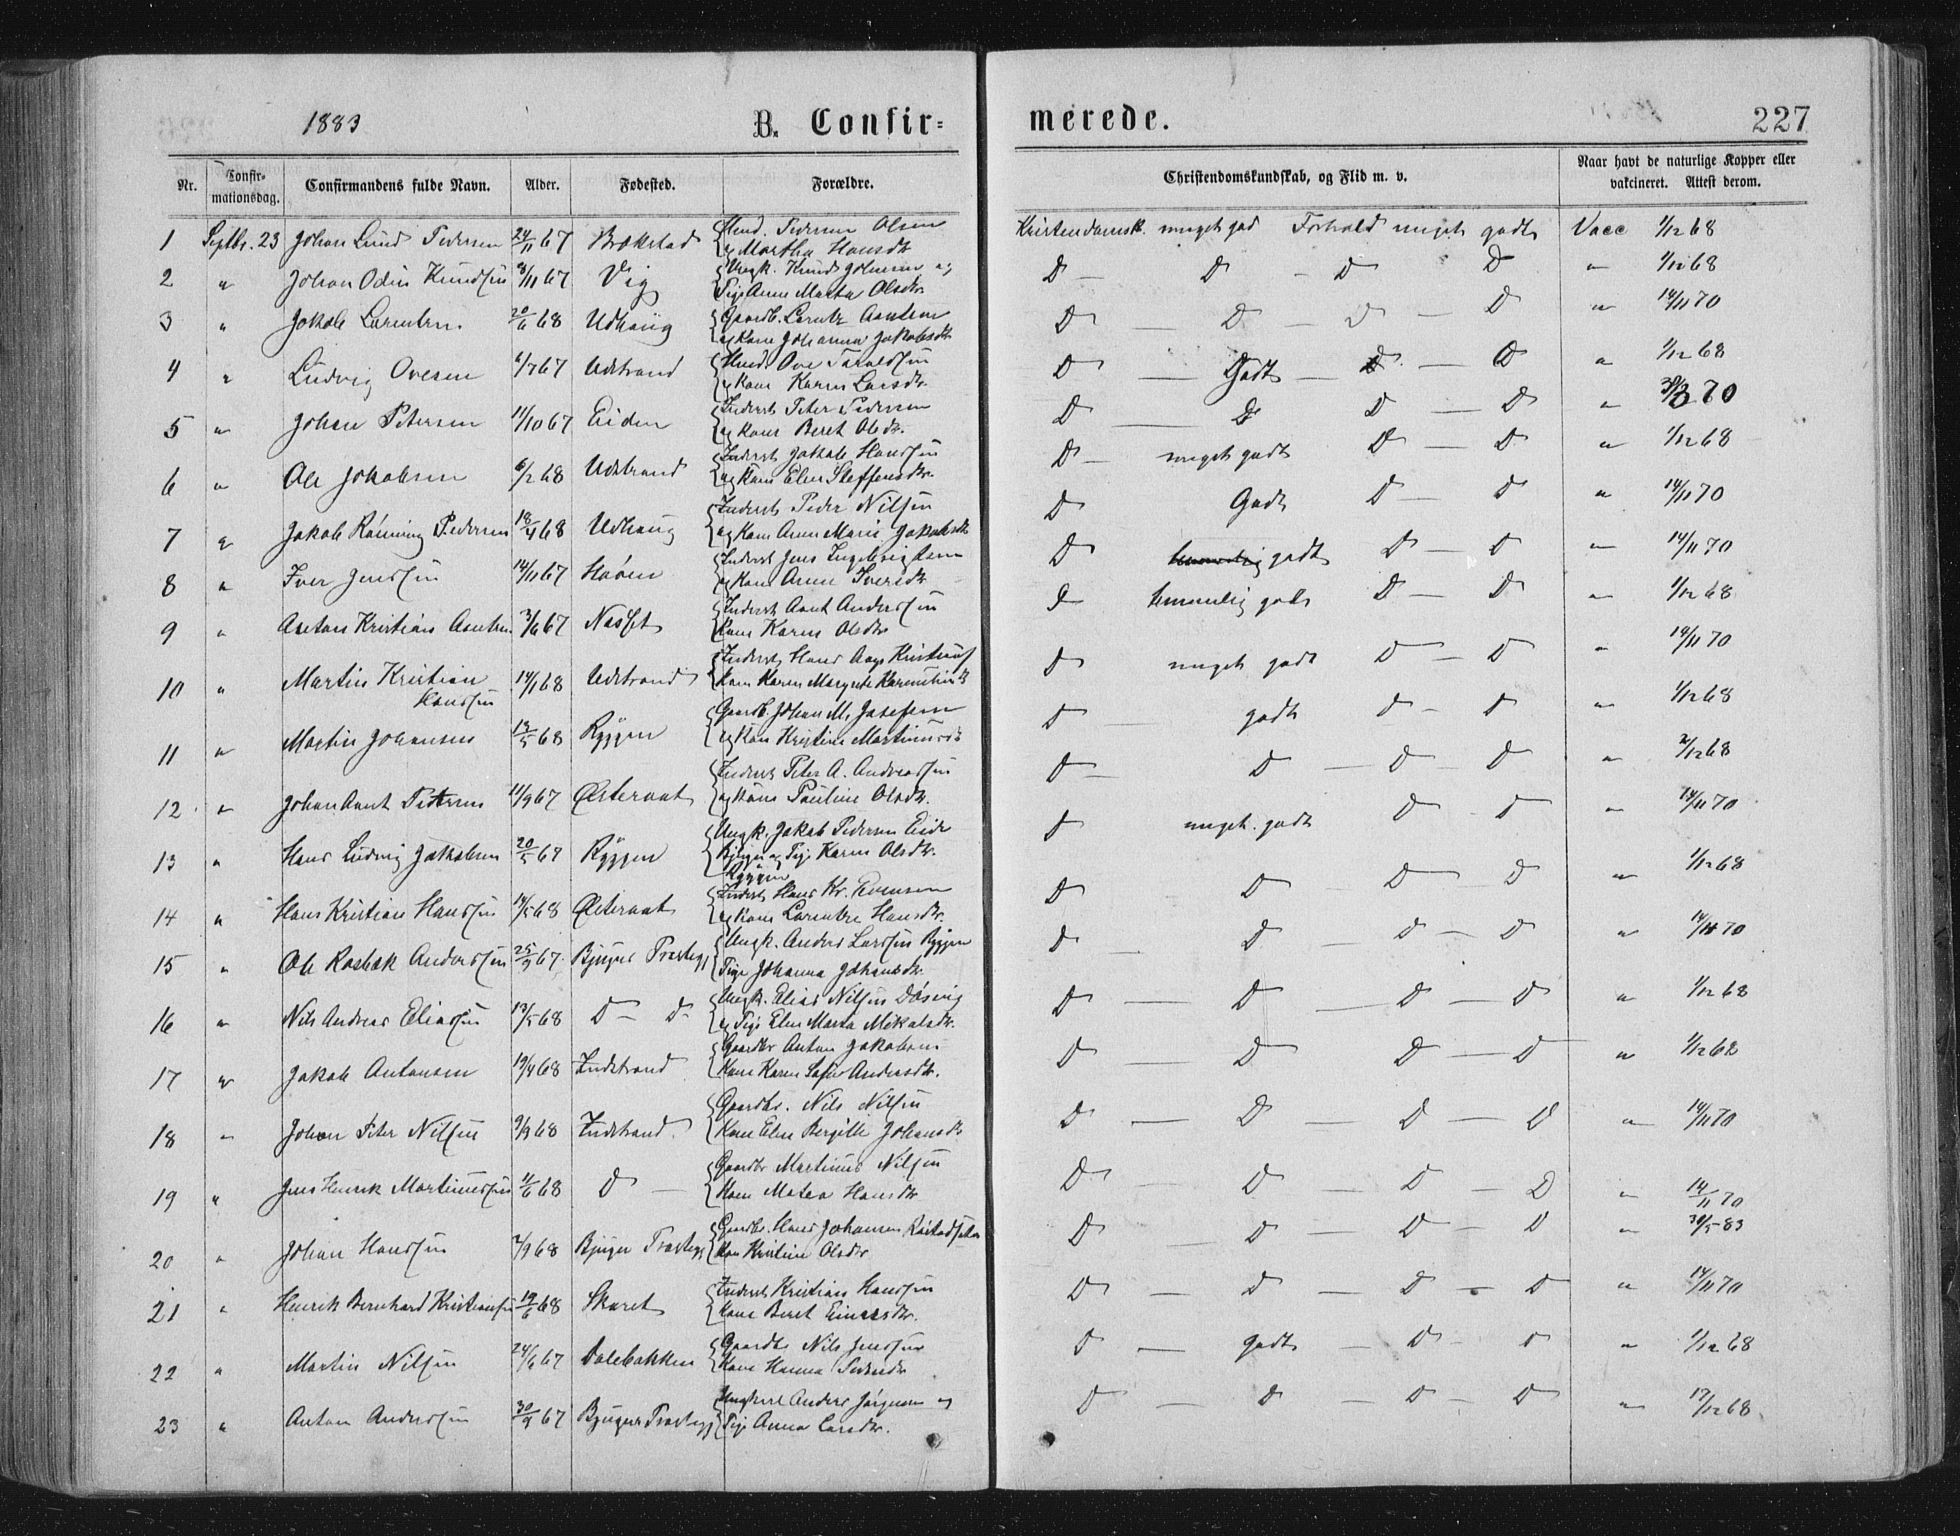 1883 B. Confirmerede. 227
Nr. Confirmationsdag. Confirmandens fulde Navn. Alder. Fødested. Forældre. Christendomskundskab, og Flid m. v. Naar havt de naturlige Kopper eller vakcineret. Attest derom.
1 Septbr. 23 Johan Lund Pedersen 24/11 67 Bækstad Pedersen Olsen og Martha Hansdtr Kristendomsk. meget god Forhold meget godt Vacc 1/12 68
2 " Johan Odin Knudsen /11 67 Vig Ungk. Knud Johnsen og Pige Anne Marta Olsdtr. D – D – D D " 1/12 68
3 " Jakob Larentsen 20/6 68 Udhaug Gaardb. Larents Arntsen og Kone Johanna Jakobsdtr D – D – D – D " 14/11 70
4 " Ludvig Ovesen 6/7 67 Udstrand Ove Taraldsen og Kone Karen Larsdtr. D – Godt – D – D " 1/12 68
5 " Johan Petersen 11/10 67 Eiden Inderst Peter Pedersen og Kone Beret Olsdtr. D – D D – D " 70
6 " Ole Jakobsen 6/2 68 Udstrand Inderst Jakob Hansen og Kone Elen Steffensdtr. D – meget godt D – D " 1/12 68
7 " Jakob Rønning Pedersen 18/4 68 Udhaug Inderst Peder Nilsen og Kone Anne Marie Jakobsdtr D Godt D – D " 14/11 70
8 " Iver Jensen 14/11 67 Hoøen Inderst Jens Ingebrigtsen og Kone Anne Iversdtr D temmelig godt D – D " 14/11 70
9 " Anton Kristian Arntsen 3/6 67 Næsset Inderst Arnt Andersen Kone Karen Olsdtr D temmelig godt D – D " 1/12 68
10 " Martin Kristian Hansen 14/1 68 Udstrand Inderst Hans Aage Kone Karen Margrete D meget godt D – D " 14/11 70
11 " Martin Johansen 13/5 68 Ryggen Gaardb. Johan M. Josefsen og Kone Kristine Martinusd. D – godt D – D " 1/12 68
12 " Johan Arnt Petersen 11/9 67 Østeraat Inderst Peter A. Andreassen og Kone Pauline Olsdtr. D – D – D – D " 2/12 68
13 " Hans Ludvig Jakobsen 20/5 67 Ryggen Ungk. Jakob Pedersen Eide Bjugn og Pige Karen Olsdtr. Ryggen D meget godt D D " 14/11 70
14 " Hans Kristian Hansen 14/5 68 Østeraat Inderst Hans Kr. Evensen og Kone Larentze Hansdtr. D D – D – D " 1/12 68
15 " Ole Rosbæk Andersen 25/9 67 Bjugns Præstegj Ungk. Anders Larsen Ryggen Pige Johanna Johansdtr. D – D – D – D " 14/11 70
16 " Nils Andreas Eliassen 13/5 68 D – D Ungk. Elias Nilsen Døsvig og Pige Elen Marta Mikalsdtr. D – D – D – D " 1/12 68
17 " Jakob Antonsen 19/4 68 Indstrand Gaardbr Anton Jakobsen Kone Karen Sofie Andersdtr. D – D D – D " 1/12 62
18 " Johan Peter Nilsen 9/3 68 Indstrand. Gaardbr. Nils Nilsen Kone Elen Bergitte Johansdtr D – D – D – D " 14/11 70
19 " Jens Henrik Martinussen 11/6 68 D – Gaardbr Martinus Nilsen Kone Matea Hansdtr D – D – D – D " 14/11 70
20 " Johan Hansen 7/9 68 Bjugns Præstegj Gaardbr. Hans Johansen Kone Kristine Olsdtr. D – D – D – D " 30/5 83
21 " Henrik Bernhard Kristiansen 19/6 68 Skaret Inderst Kristian Hansen Kone Beret Einersdtr. D – D – D – D " 14/11 70
22 " Martin Nilsen 24/6 67 Dalebakken Gaardbr Nils Jenssen Kone Hanna Pedersdtr D – godt – D – D " 1/12 68
23 " Anton Andersen 30/9 67 Bjugns Præstegj Ungkarl Anders Jørgensen og Pige Anna Larsdtr. D – D – D – D " 17/12 68